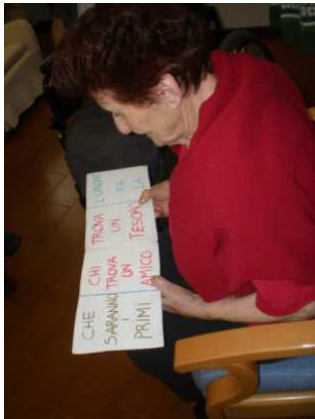 CHE
SARANNO
I
PRIMI
CHI
TROVA
UN
AMICO
TROVA
UN
TESORO
FA
LA